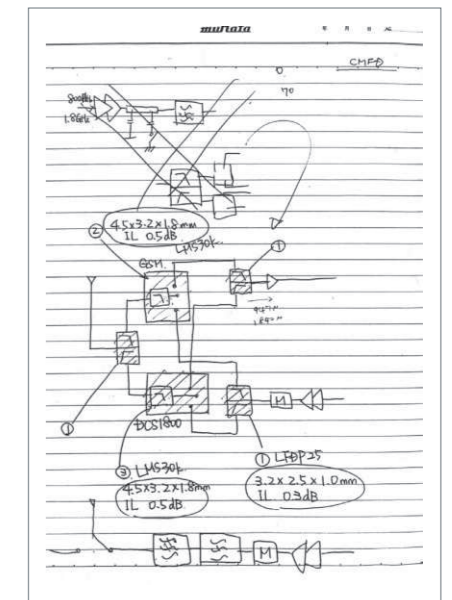 muRata
CMFD
0
70
800MHz
1.8GHz
② 4.5×3.2×1.8mm
IL 0.5dB
LMS30K
GSM
①
①
DCS1800
M
③ LMS30K
4.5×3.2×1.8mm
IL 0.5dB
① LFDP25
3.2×2.5×1.0mm
IL 0.3dB
M